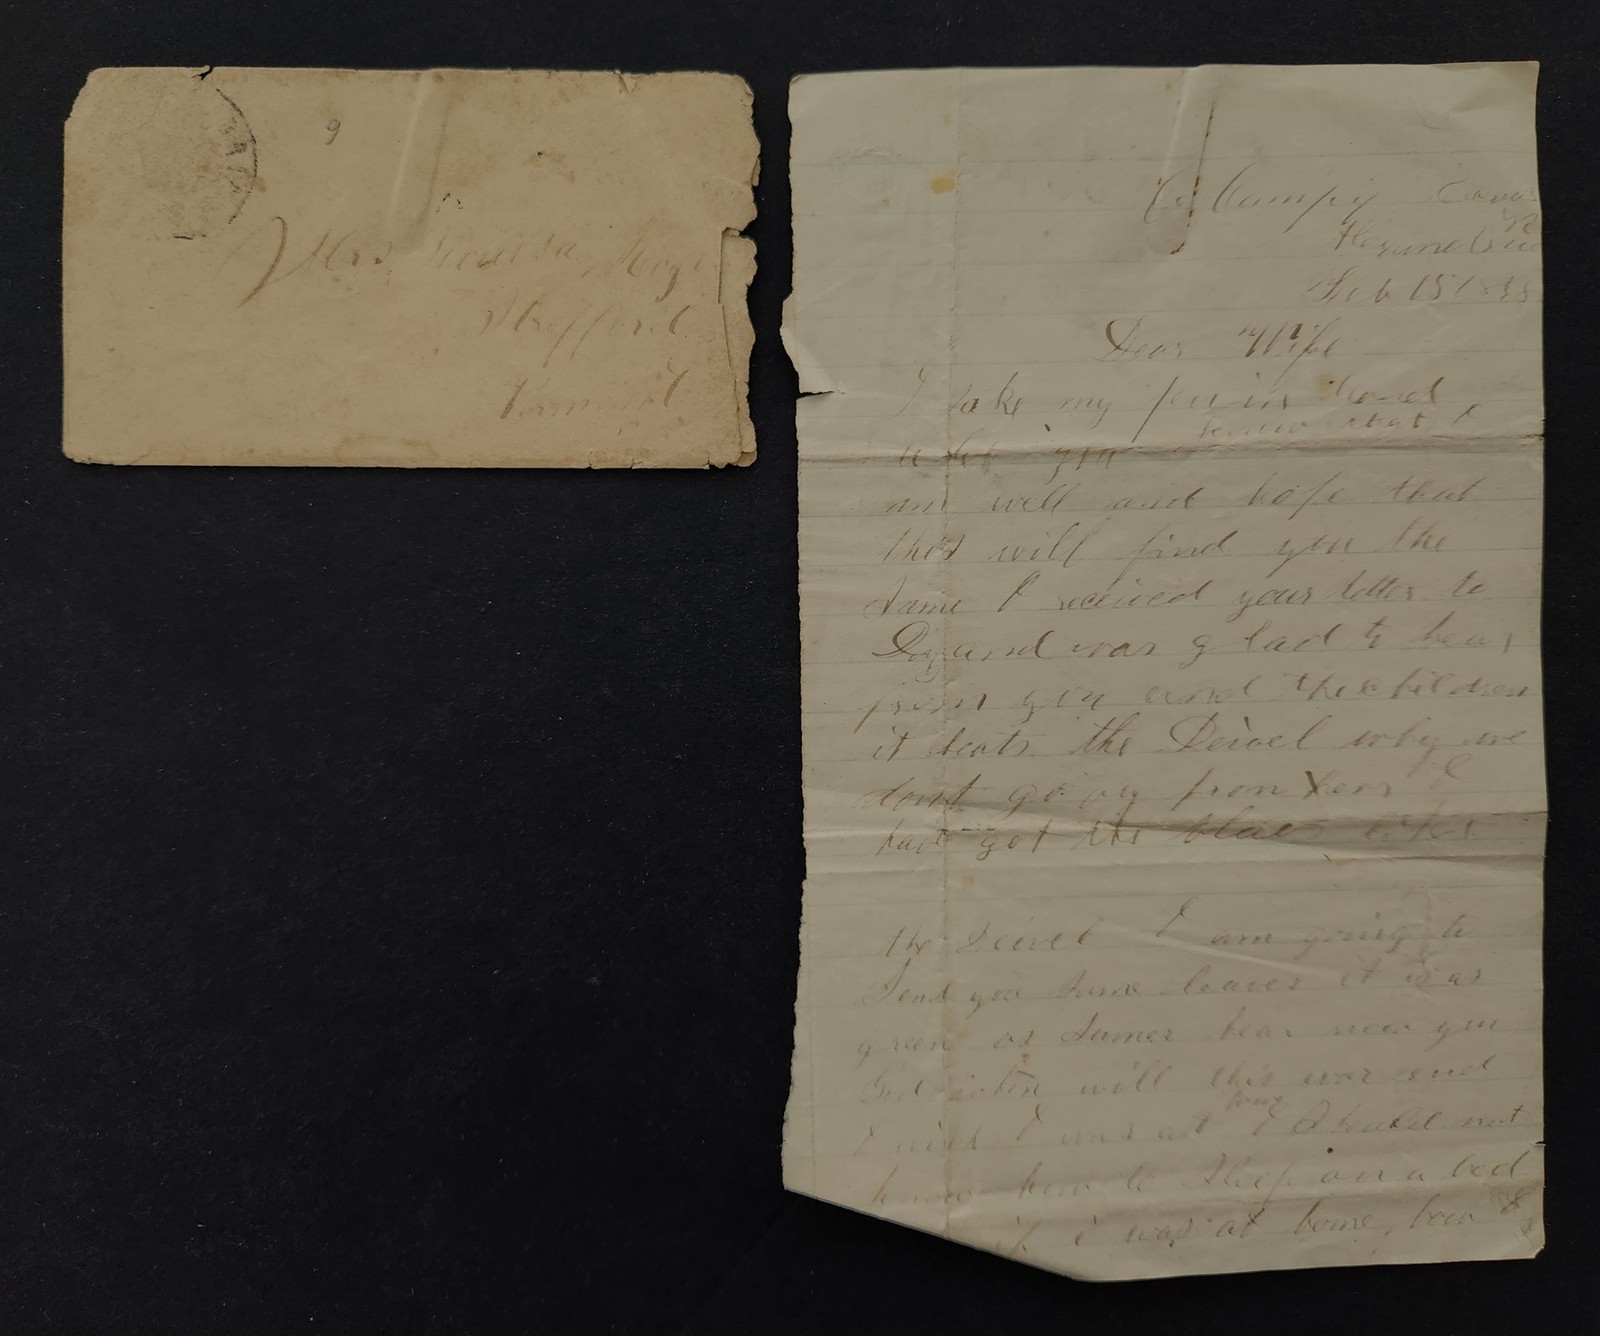 9
Mrs
Strafford
Vermont
Camp
Feb 15
Dear Wife
I take my pen in hand
know that I
to let you
am well and hope that
this will find you the
same I received your letter to
Day and was glad to hear
from you and the children
it beats the Deivel why we
dont go from hear I
have got the blues like
the Deivel I am going to
Send you some leaves it is as
green as Sumer hear now you
will this war end
home
I wish I was at I Should not
know how to Sleep on a bed
if i was at home, how